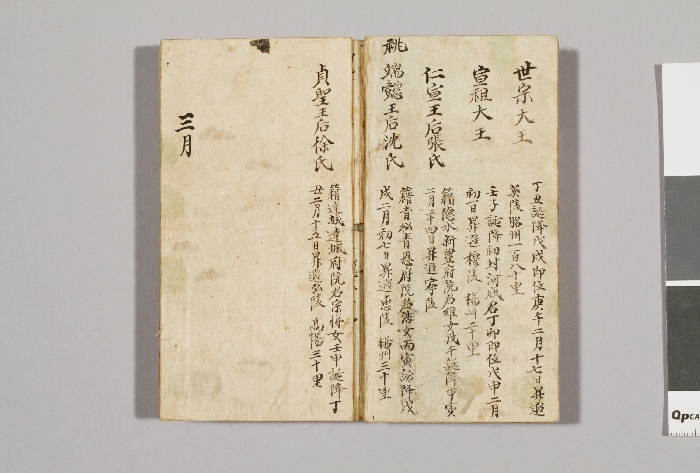 世宗大王
丁丑誕降戊戌即位庚午二月十七日昇遐
英陵驪州一百八十里
宣祖大王
壬子誕降初封河城君丁卯即位戊申二月
初一日昇遐穆陵 楊州二十里
仁宣王后張氏
籍德水新豊府院君維女戊午誕降甲寅
二月二十四日昇遐寧陵
祧 端懿王后沈氏
籍青松青恩府院君浩女丙寅誕降戊
戌二月初七日昇遐惠陵 楊州三十里
貞聖王后徐氏
籍達城達城府院君宗悌女壬申誕降丁
丑二月十五日昇遐弘陵 高陽三十里
三月
QPCA